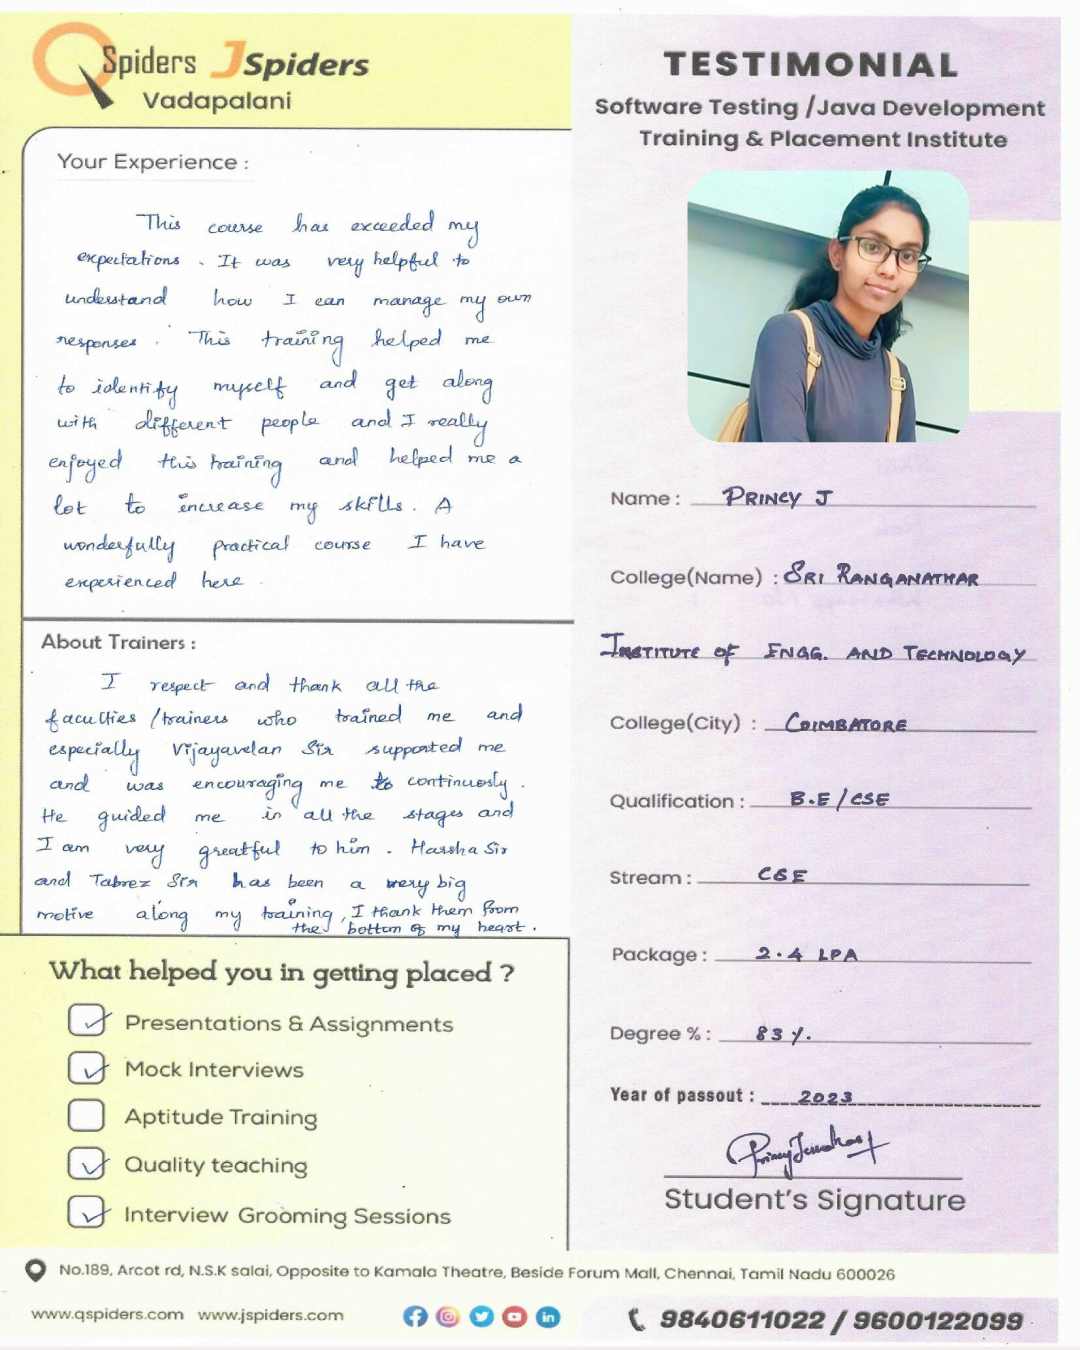 QSpiders JSpiders
Vadapalani
Your Experience :
This course has exceeded my
expectations . It was very helpful to
understand how I can manage my own
responses . This training helped me
to identify myself and get along
with different people and I really
enjoyed this training and helped me a
lot to increase my skills. A
wonderfully practical course I have
experienced here .
About Trainers :
I respect and thank all the
faculties /trainers who trained me and
especially Vijayavelan Sir supported me
and was encouraging me to continuosly .
He guided me in all the stages and
I am very greatful to him . Harsha Sir
and Tabrez Sir has been a very big
motive along my training, I thank them from
the bottom of my heart .
What helped you in getting placed ?
Presentations & Assignments
Mock Interviews
Aptitude Training
Quality teaching
Interview Grooming Sessions
TESTIMONIAL
Software Testing /Java Development
Training & Placement Institute
Name : PRINCY J
College(Name) : SRI RANGANATHAR
INSTITUTE OF ENGG. AND TECHNOLOGY
College(City) : COIMBATORE
Qualification : B.E / CSE
Stream : CSE
Package : 2.4 LPA
Degree % : 83 %.
Year of passout : 2023
Student's Signature
No.189, Arcot rd, N.S.K salai, Opposite to Kamala Theatre, Beside Forum Mall, Chennai, Tamil Nadu 600026
www.qspiders.com www.jspiders.com
9840611022 / 9600122099